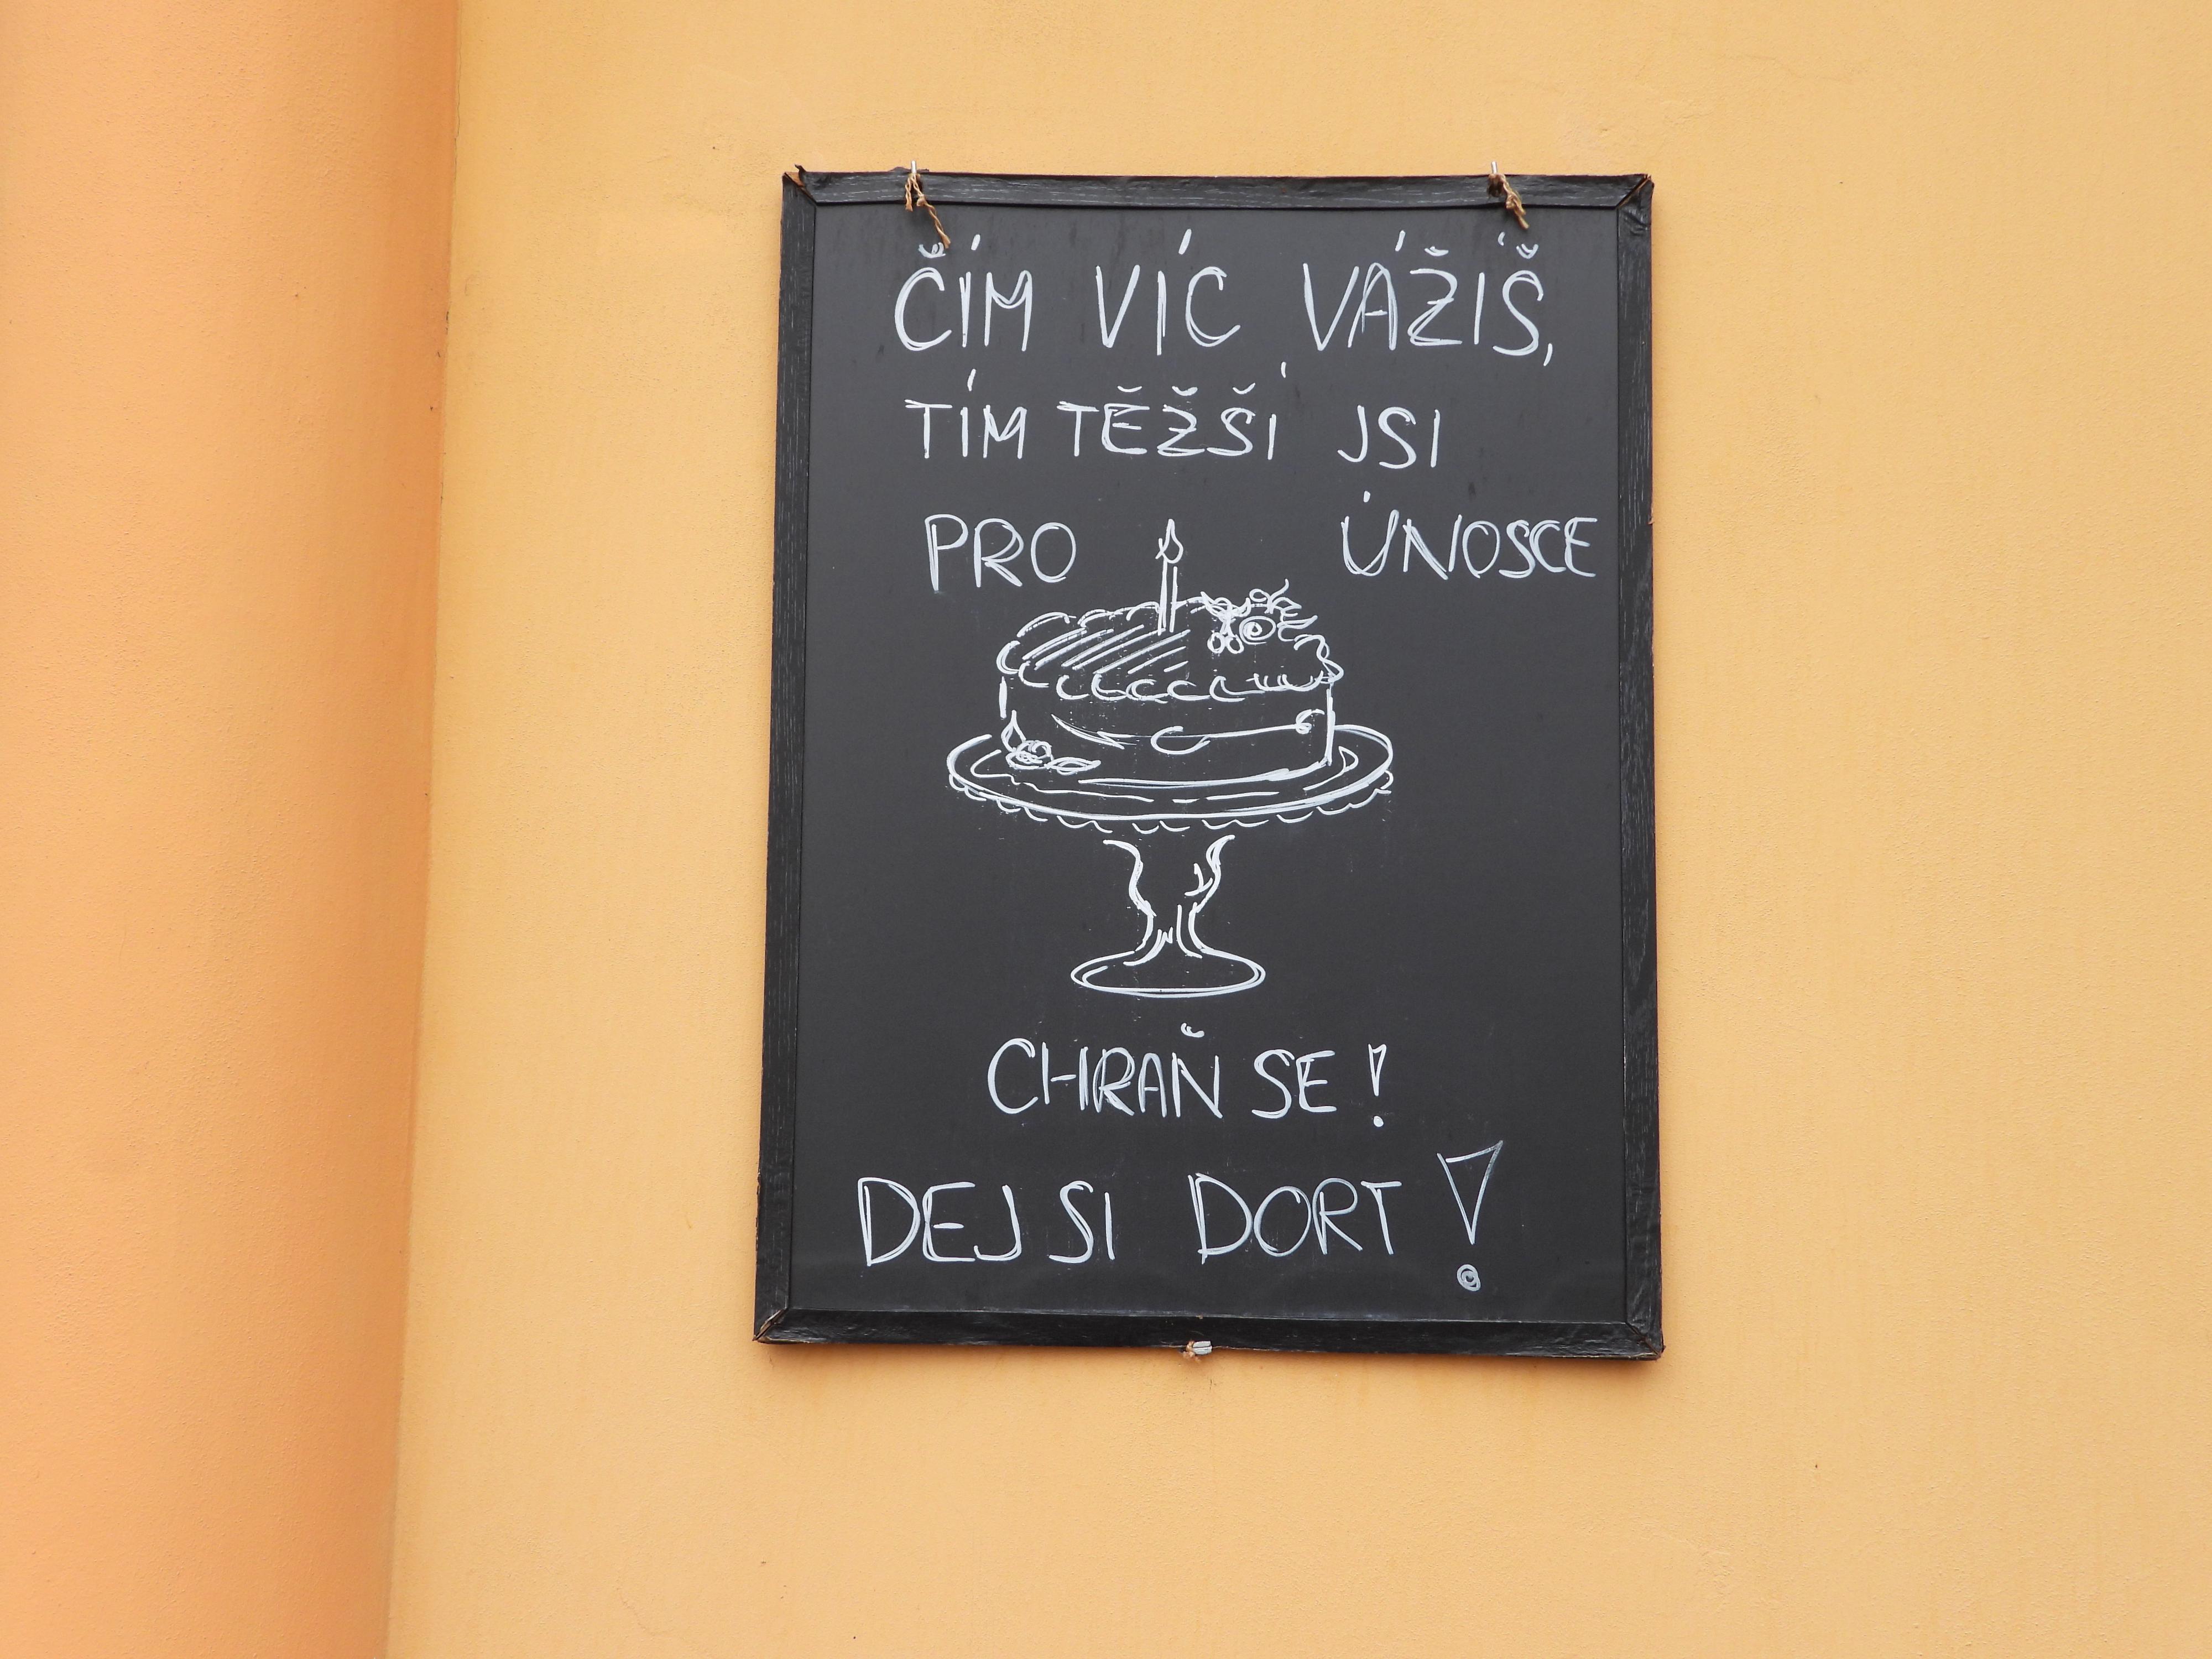 ČÍM VÍC VÁŽÍŠ,
TÍM TĚŽŠÍ JSI
PRO ÚNOSCE
CHRAŇ SE!
DEJ SI DORT!